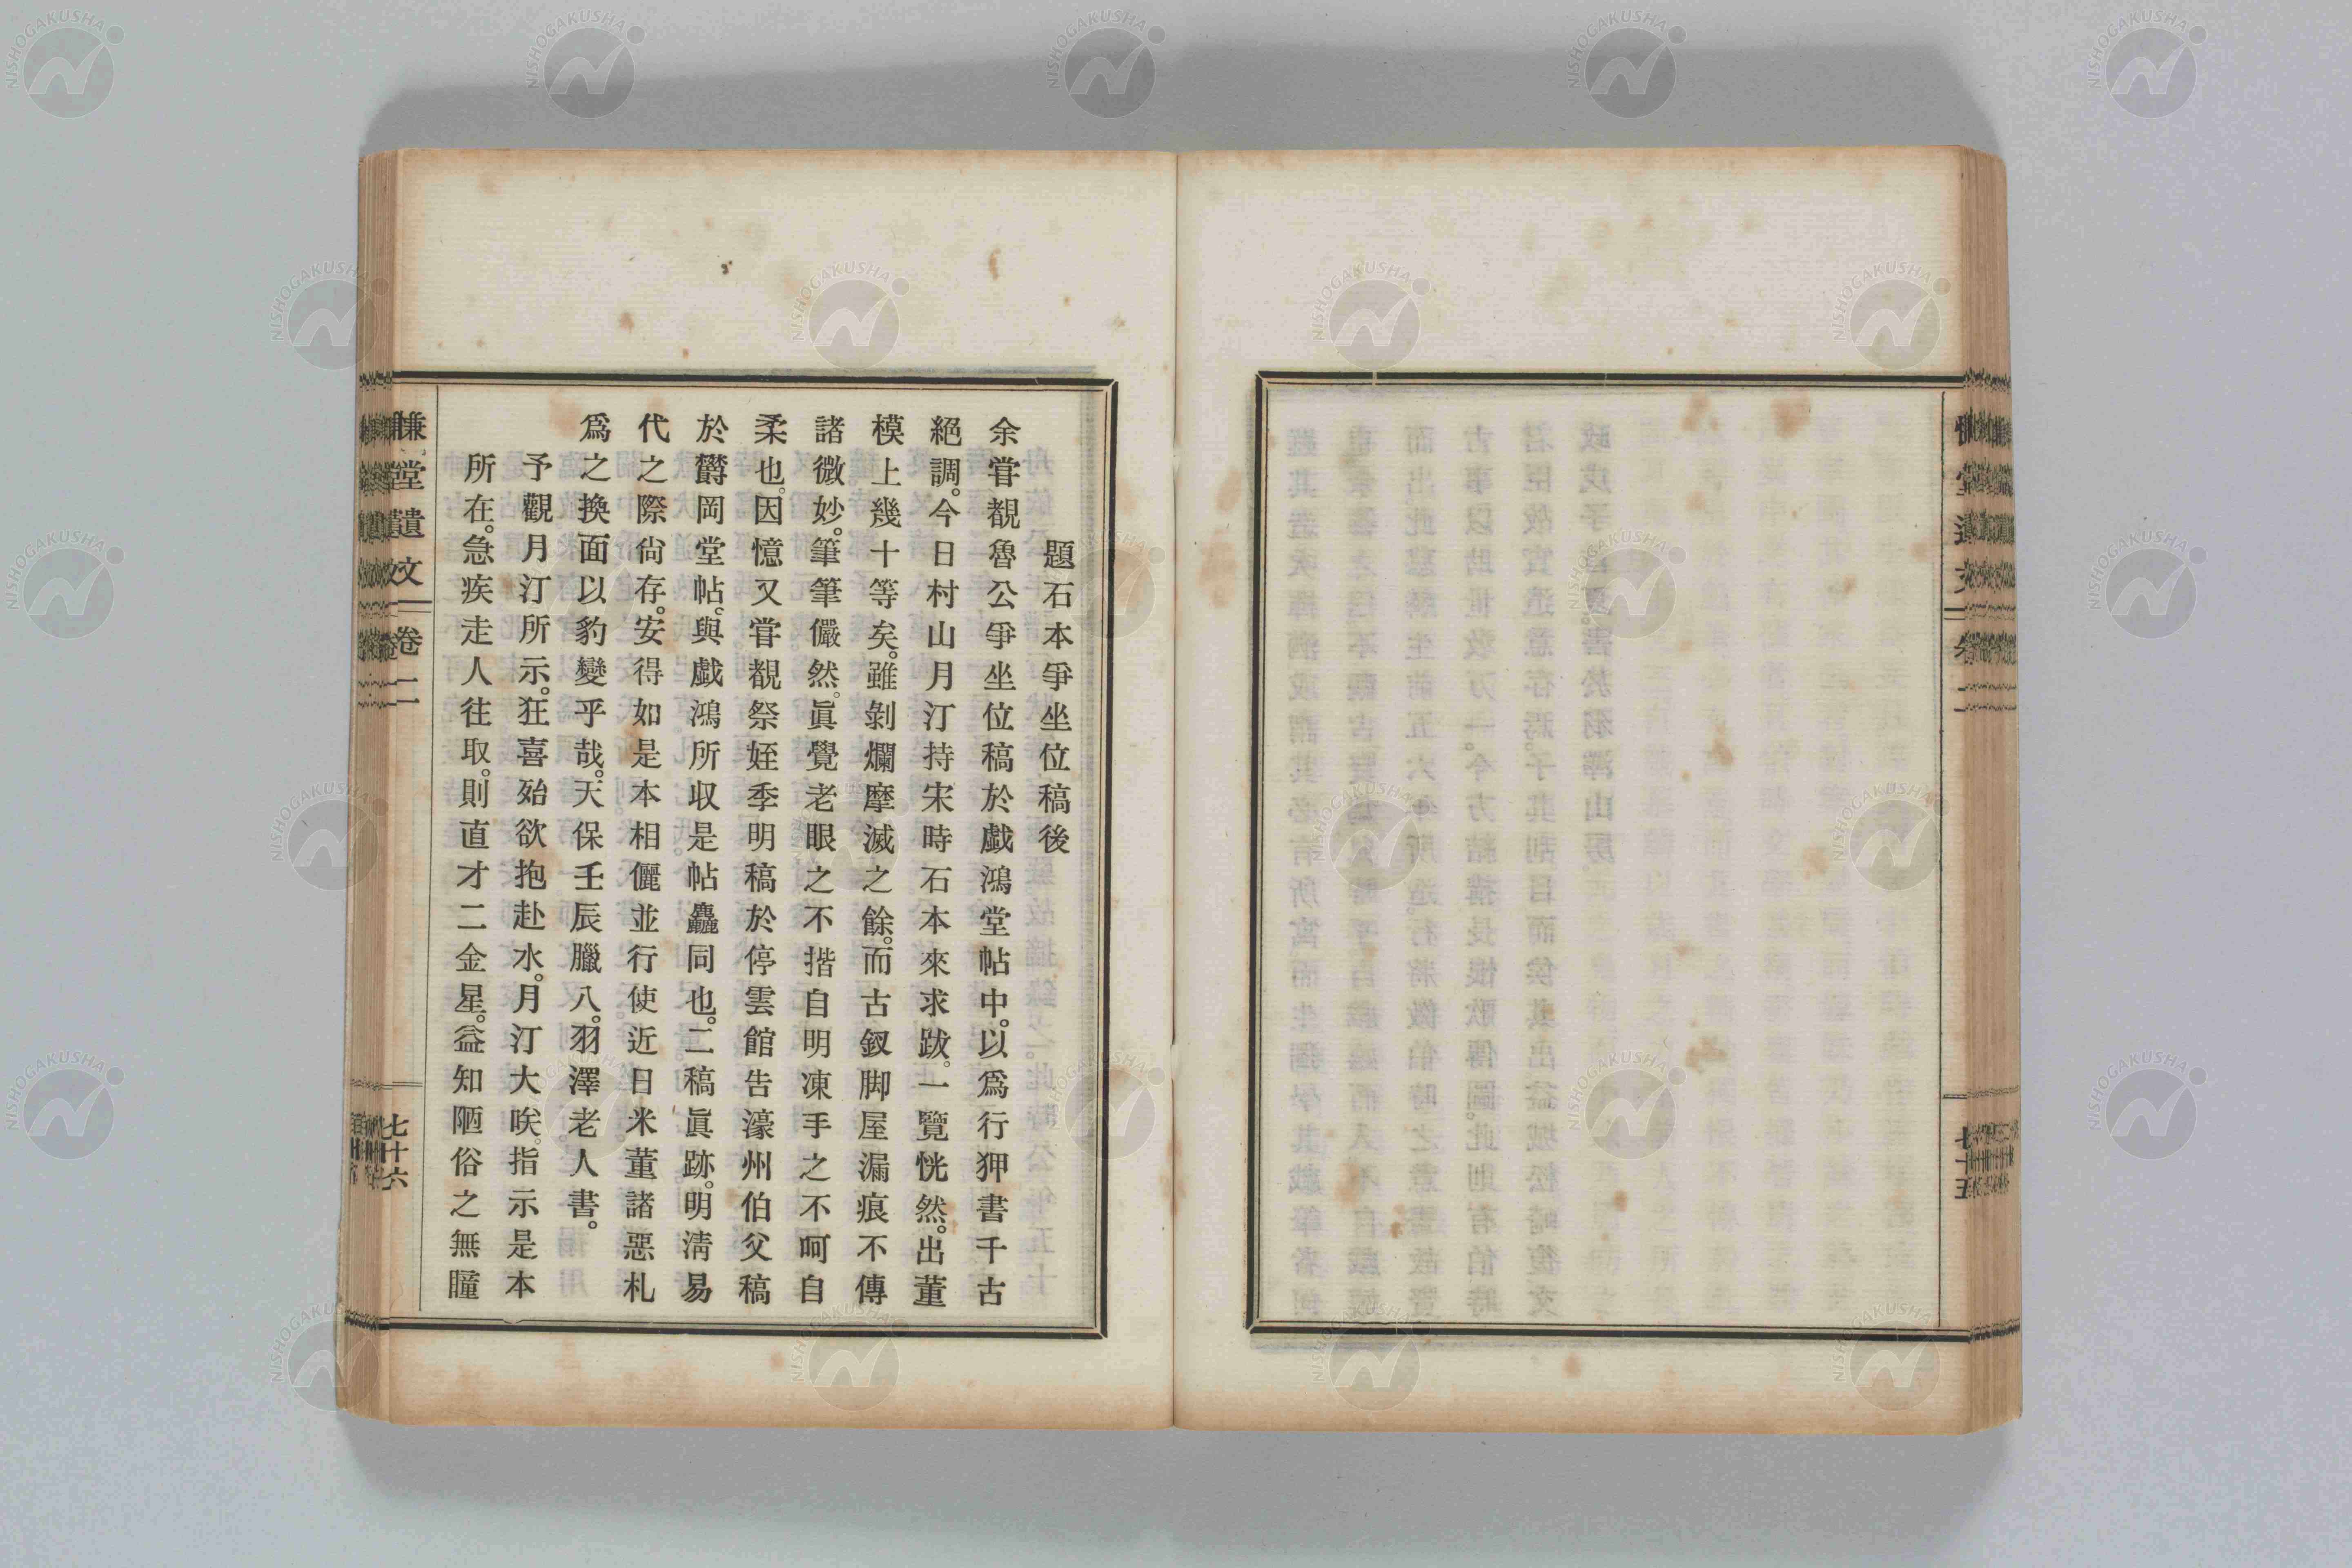 題石本爭坐位稿後
余甞覩魯公爭坐位稿於戯鴻堂帖中。以爲行狎書千古
絕調。今日村山月汀持宋時石本來求跋。一覽恍然。出董
模上幾十等矣。雖剝爛摩滅之餘。而古釵脚屋漏痕不傳
諸微妙。筆筆儼然。眞覺老眼之不揩自明凍手之不呵自
柔也。因憶又甞覩祭姪季明稿於停雲館告濠州伯父稿
於欝岡堂帖。與戯鴻所収是帖麤同也。二稿眞跡。明淸易
代之際尙存。安得如是本相儷並行使近日米董諸惡札
爲之換面以豹變乎哉。天保壬辰臘八。羽澤老人書。
予觀月汀所示。狂喜殆欲抱赴水。月汀大唉。指示是本
所在。急疾走人往取。則直才二金星。益知陋俗之無瞳
慊堂遺文 卷二
七十六
NISHOGAKUSHA